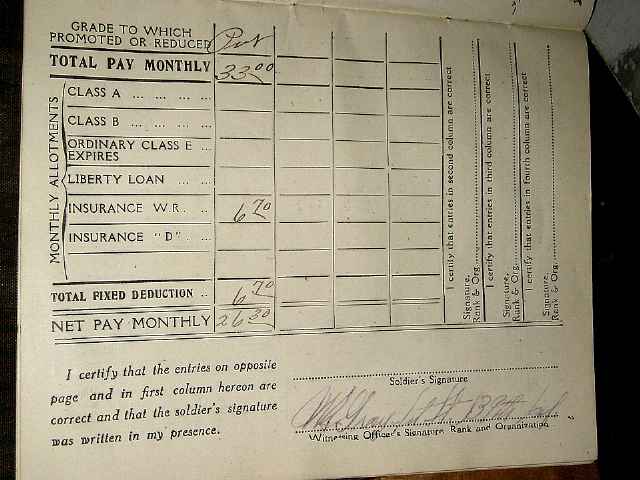 GRADE TO WHICH
PROMOTED OR REDUCED Pvt
TOTAL PAY MONTHLY 33 00
MONTHLY ALLOTMENTS
CLASS A ... ... ... ...
CLASS B ... ... ... ...
ORDINARY CLASS E ...
EXPIRES
LIBERTY LOAN ... ...
INSURANCE W.R. .. 6 70
INSURANCE "D" . ...
TOTAL FIXED DEDUCTION .. 6 70
NET PAY MONTHLY 26 30
I certify that entries in second column are correct
Signature,
Rank & Org.
I certify that entries in third column are correct
Signature,
Rank & Org.
I certify that entries in fourth column are correct
Signature,
Rank & Org.
I certify that the entries on opposite
page and in first column hereon are
correct and that the soldier's signature
was written in my presence.
Soldier's Signature
Witnessing Officer's Signature Rank and Organization